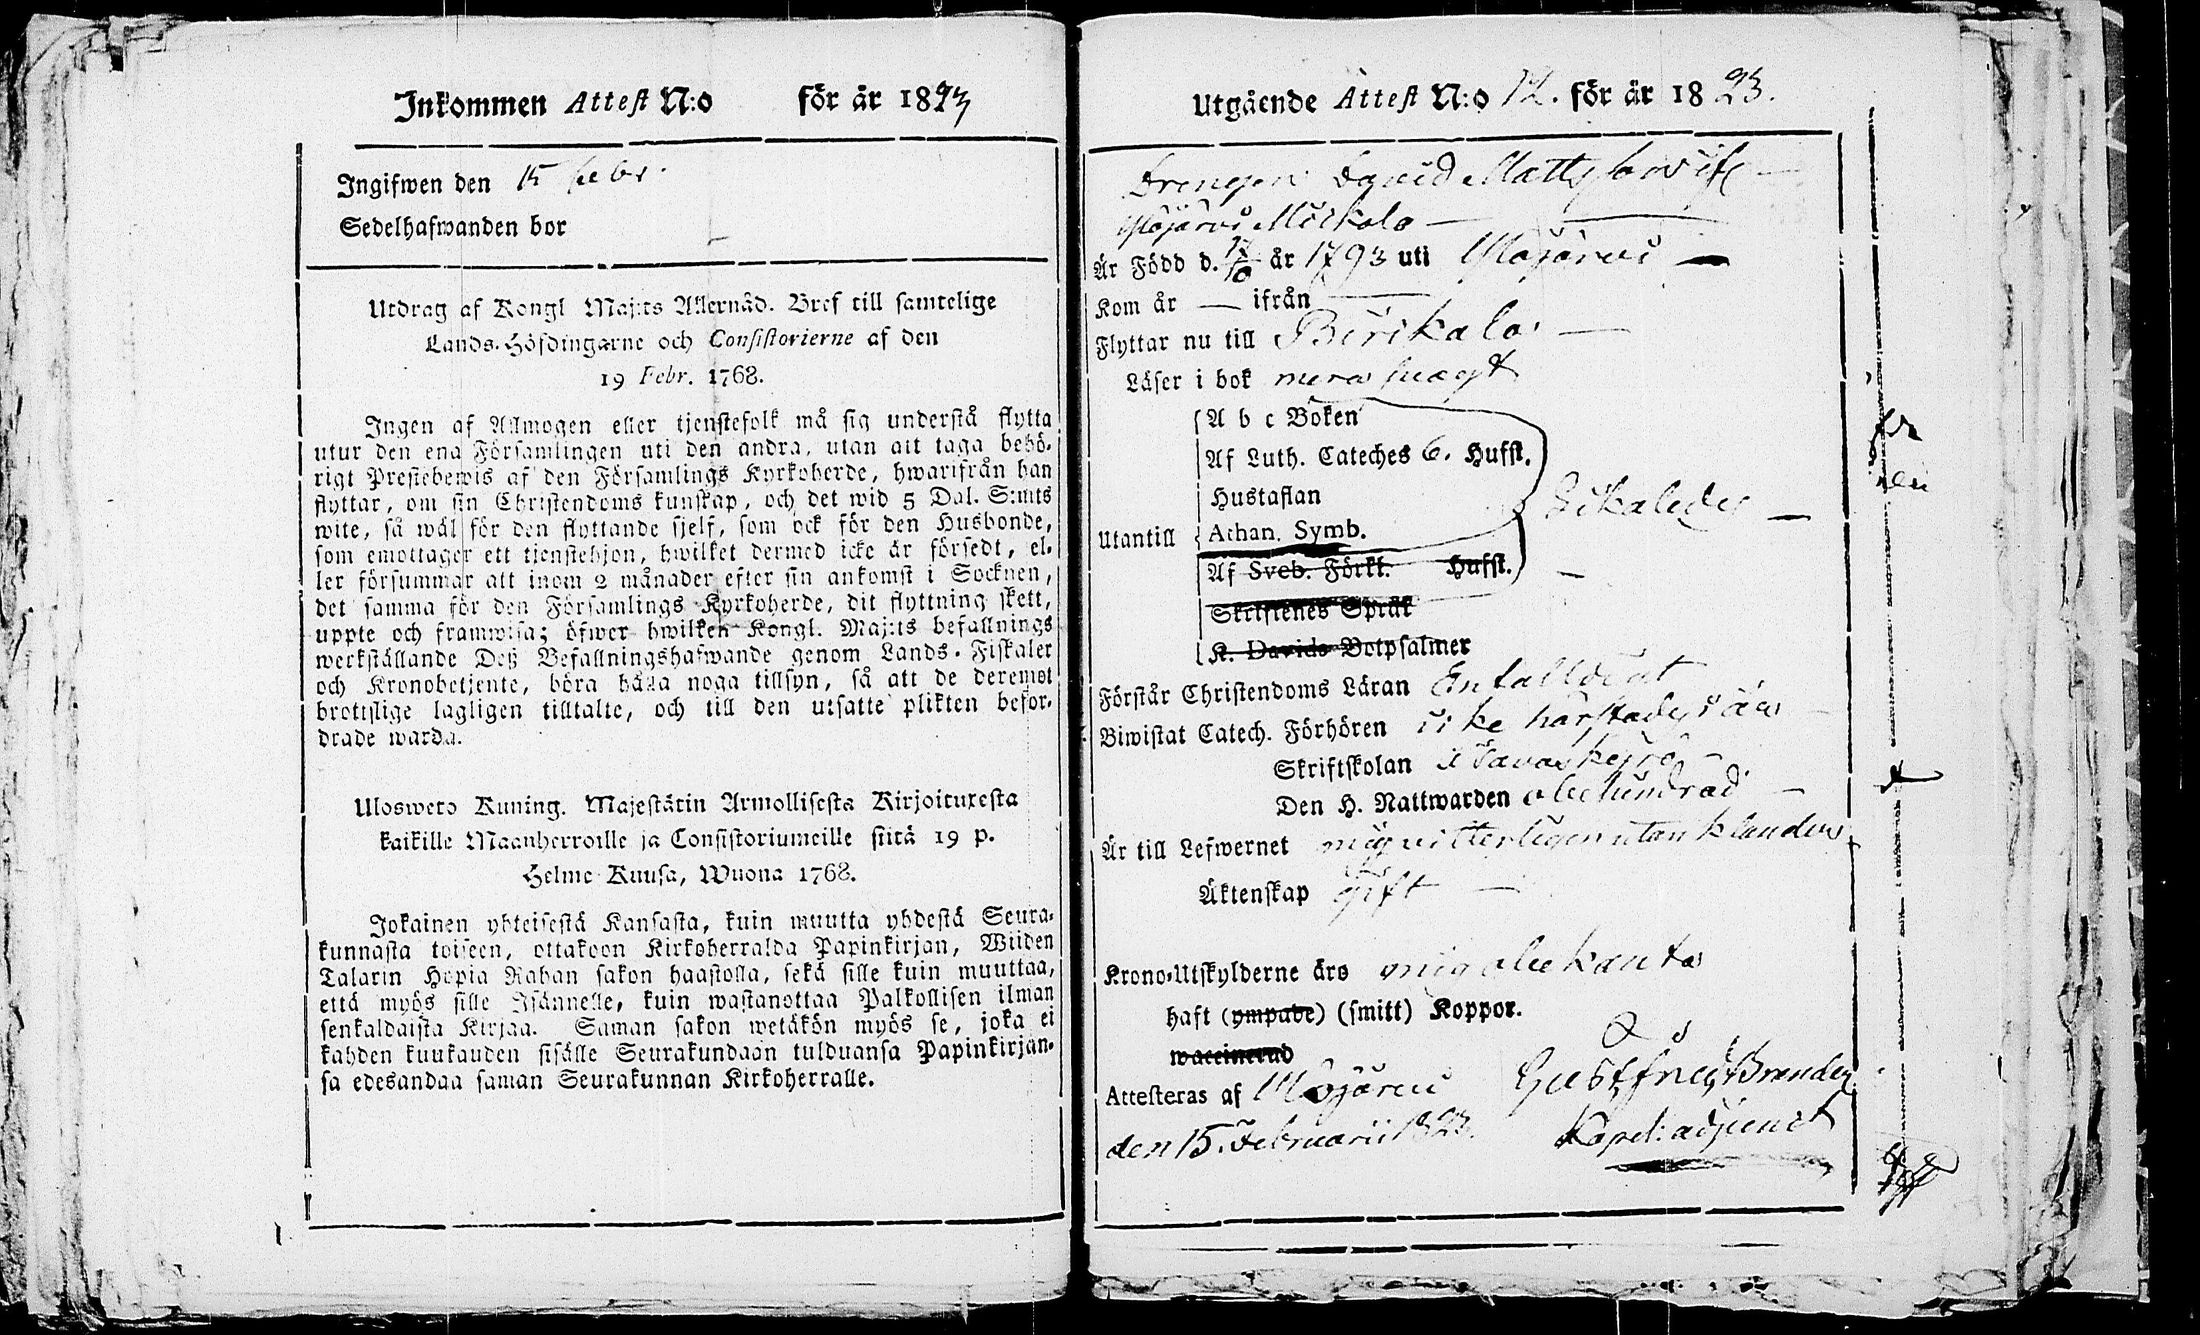 Inkommen Attest N:o för år 1823
Ingifwen den 15 febr.
Sedelhafwanden bor
Utdrag af Kongl Maj:ts Allernåd. Bref till samtelige
Lands-Höfdingarne och Consistorierne af den
19 Febr. 1768.
Ingen af Allmogen eller tjenstefolk må sig understå flytta
utur den ena Församlingen uti den andra, utan att taga behö-
rigt Prestebewis af den Församlings Kyrkoherde, hwarifrån han
flyttar, om sin Christendoms kunskap, och det wid 5 Dal. S:mts
wite, så wäl för den flyttande sjelf, som ock för den Husbonde,
som emottager ett tjenstehjon, hwilket dermed icke är försedt, el-
ler försummar att inom 2 månader efter sin ankomst i Socknen,
det samma för den Församlings Kyrkoherde, dit flyttning skett,
uppte och framwisa; öfwer hwilken Kongl. Maj:ts befallnings
werkställande Deß Befallningshafwande genom Lands-Fiskaler
och Kronobetjente, böra hålla noga tillsyn, så att de deremot
brottslige lagligen tilltalte, och till den utsatte plikten befor-
drade warda.
Ulosweto Kuning. Majestätin Armollisesta Kirjoituxesta
kaikille Maanherroille ja Consistoriumeille siitä 19 p.
Helme Kuusa, Wuona 1768.
Jokainen yhteisestä Kansasta, kuin muutta yhdestä Seura-
kunnasta toiseen, ottakoon Kirkoherralda Papinkirjan, Wiiden
Talarin Hopia Rahan sakon haastolla, sekä sille kuin muuttaa,
että myös sille Isännelle, kuin wastanottaa Palkollisen ilman
senkaldaista Kirjaa. Saman sakon wetäkön myös se, joka ei
kahden kuukauden sisälle Seurakundaan tulduansa Papinkirjan-
sa edesandaa saman Seurakunnan Kirkoherralle.
Utgående Attest N:o 12. för år 1823.
Drengen David Matts
Ylöjärvi Mickola
Är Född d. 17/10 år 1793 uti Ylöjärvi
Kom år — ifrån —
Flyttar nu till Birkala
Läser i bok mera svagt
A b c Boken
Af Luth. Cateches 6. Hufst.
Hustaflan
Utantill Athan. Symb. Likaledes
Af Sveb. Förkl. Hufst.
Skriftenes Språk
K. Davids Botpsalmer
Förstår Christendoms Läran Enfalldigt
Biwistat Catech. Förhören icke härstädes i år
Skriftskolan i Tavaskyro
Den H. Nattwarden obehindrad
Är till Lefwernet mig vitterligen utan klander
Äktenskap Gift
Krono-Utskylderne äro mig obekanta
haft (ympade) (smitt) Koppor.
waccinerad
Attesteras af Ylöjärvi Gust. Brander
den 15. Februarii 1823. Kapel: adjunct